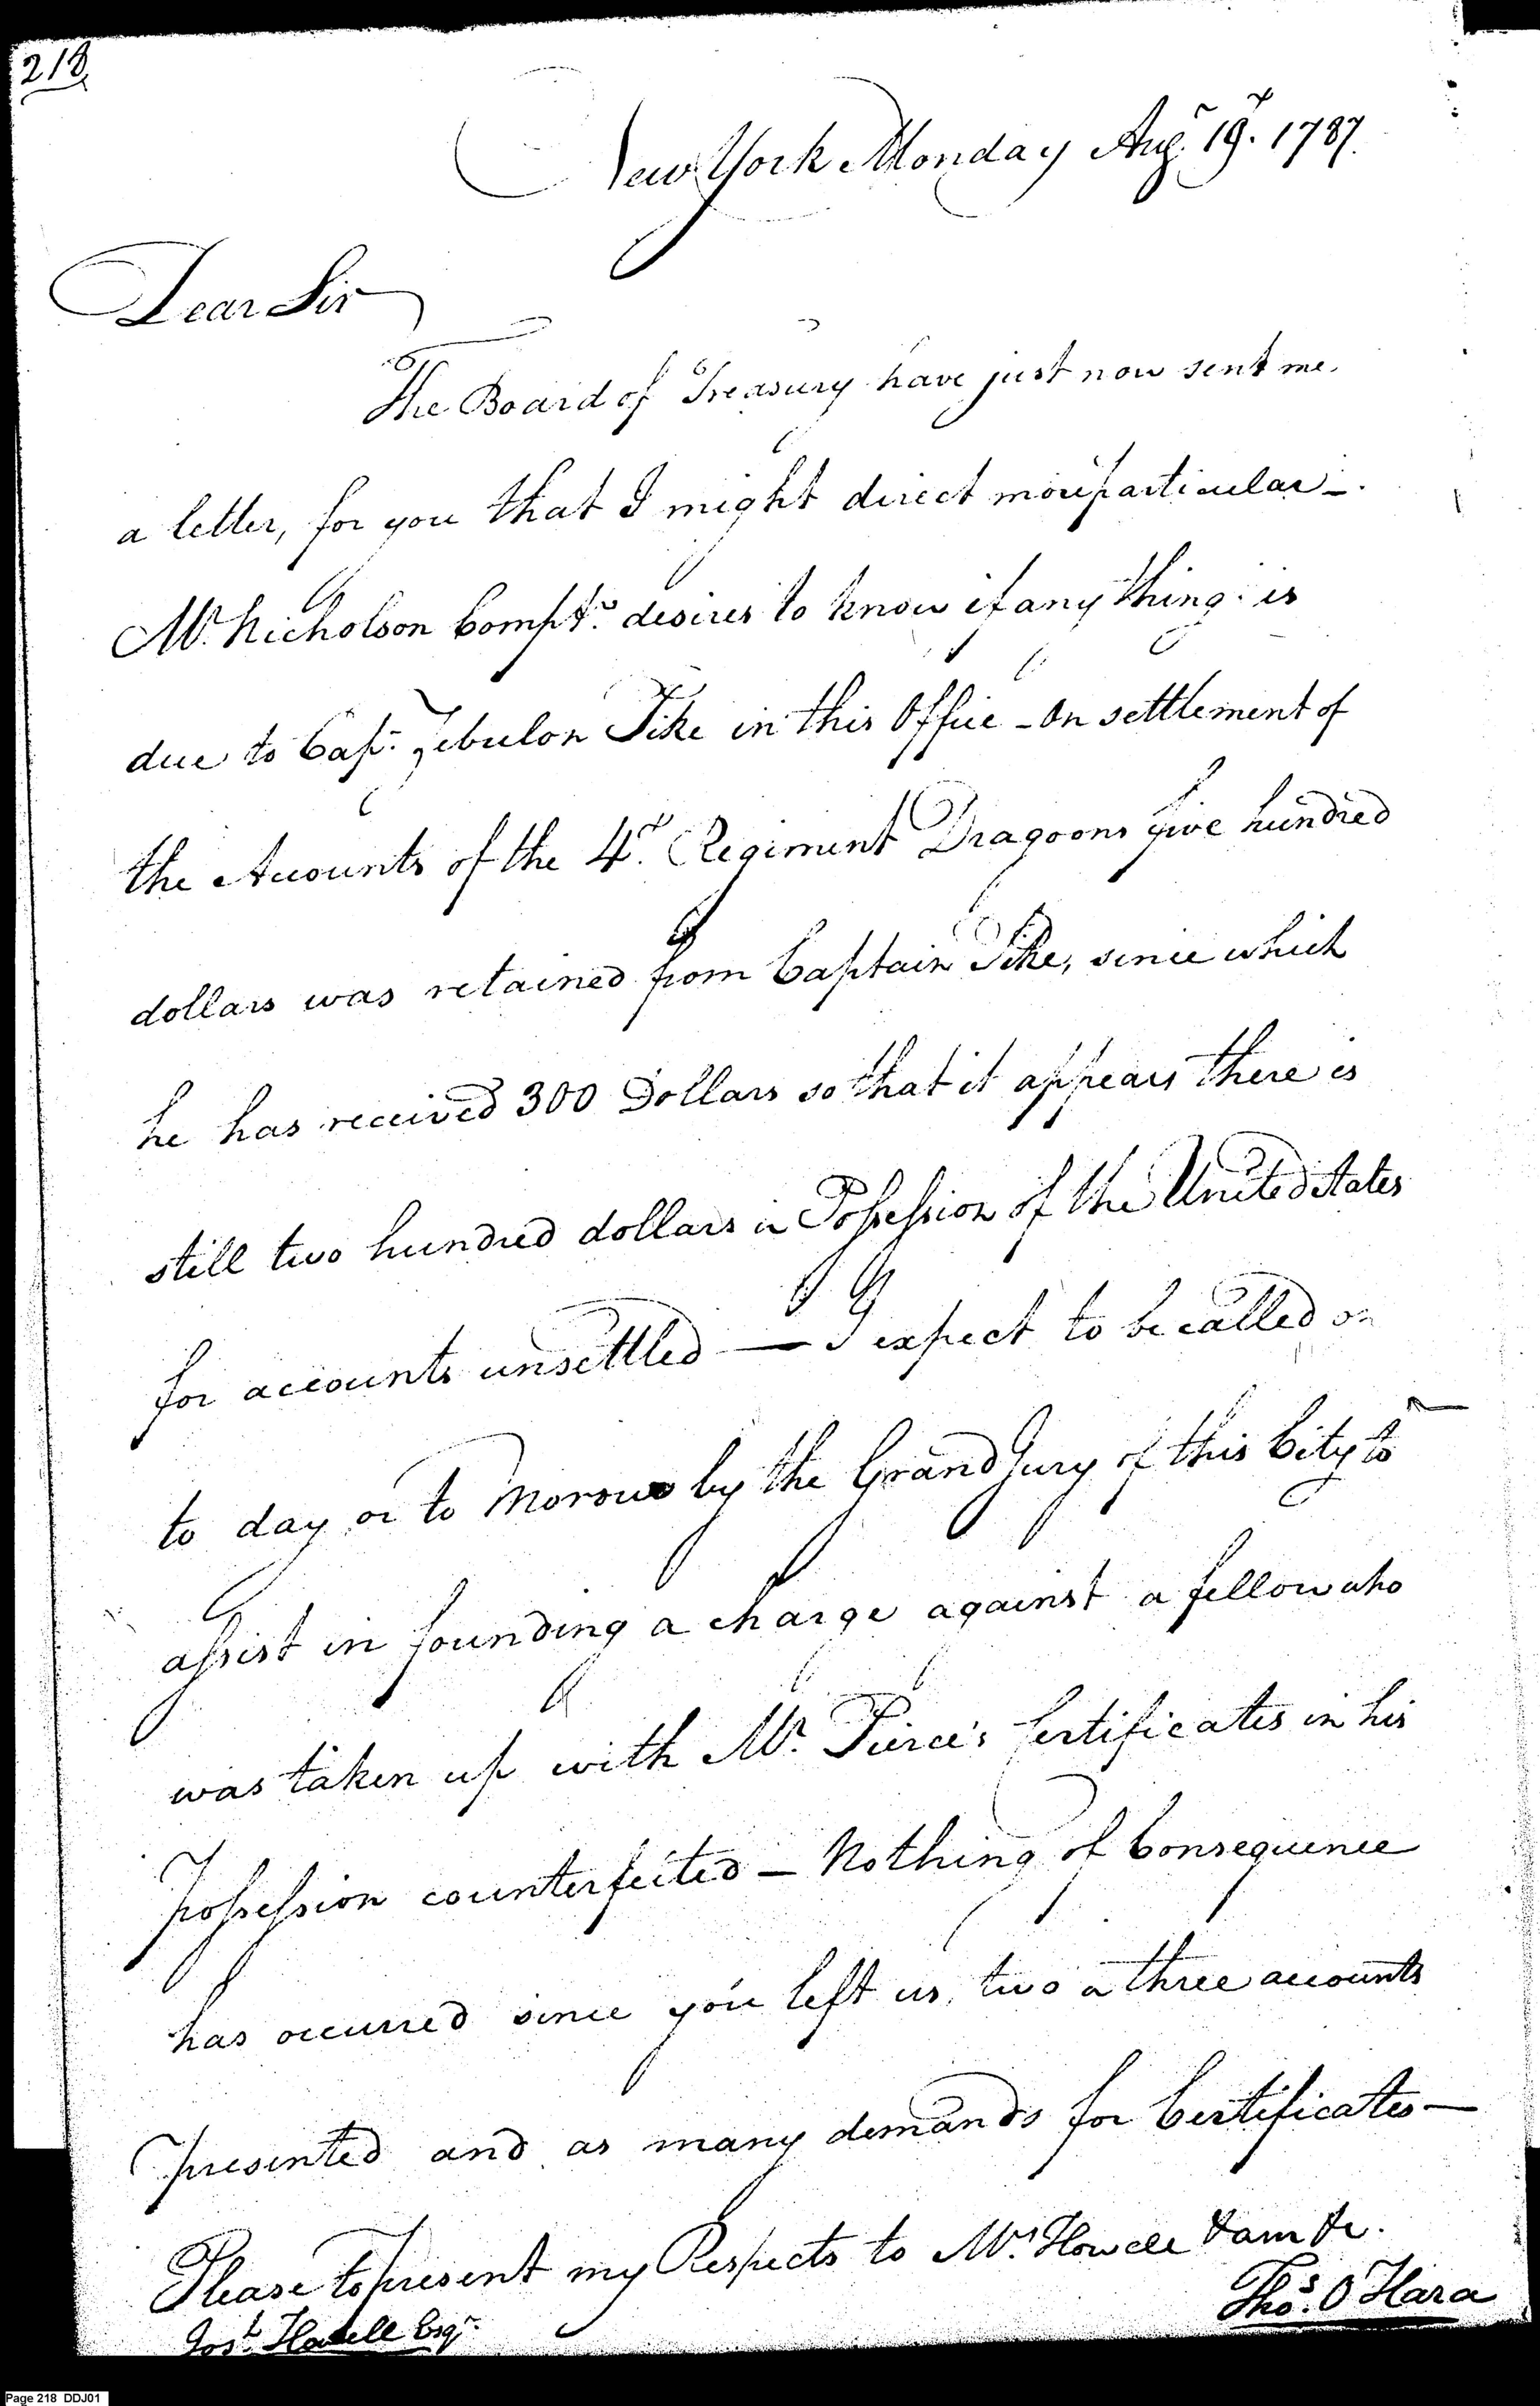 218
New York Monday Augt. 19th. 1787.
Dear Sir
The Board of Treasury have just now sent me
a letter, for you that I might direct more particular—.
Mr. Nicholson Comptr. desires to know if any thing is
due to Capt. Zebulon Pike in this Office - On settlement of
the Accounts of the 4th. Regiment Dragoons five hundred
dollars was retained from Captain Pike, since which
he has received 300 Dollars so that it appears there is
still two hundred dollars in Possession of the United States
for accounts unsettled — I expect to be called on
to day or to Morow by the Grand Jury of this City to
assist in founding a charge against a fellow who
was taken up with Mr. Pierce's Certificates in his
possession counterfeited — Nothing of Consequence
has occurred since you left us, two or three accounts
presented and as many demands for Certificates —
Please to present my Respects to Mrs. Howell & am &c.
Thos. O Hara
Josh. Howell Esqr.
Page 218 DDJ01